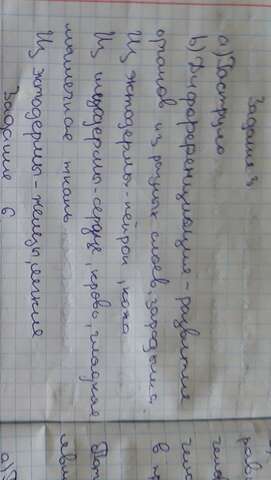 Задание 5
а) Гаструла
b) Дифференциация - развитие
органов из разных слоев зародыша.
Из эктодермы - нейрон, кожа
Из мезодермы - сердце, кровь, гладкая
мышечная ткань
Из энтодермы - железы, легкие
Задание 6
а)